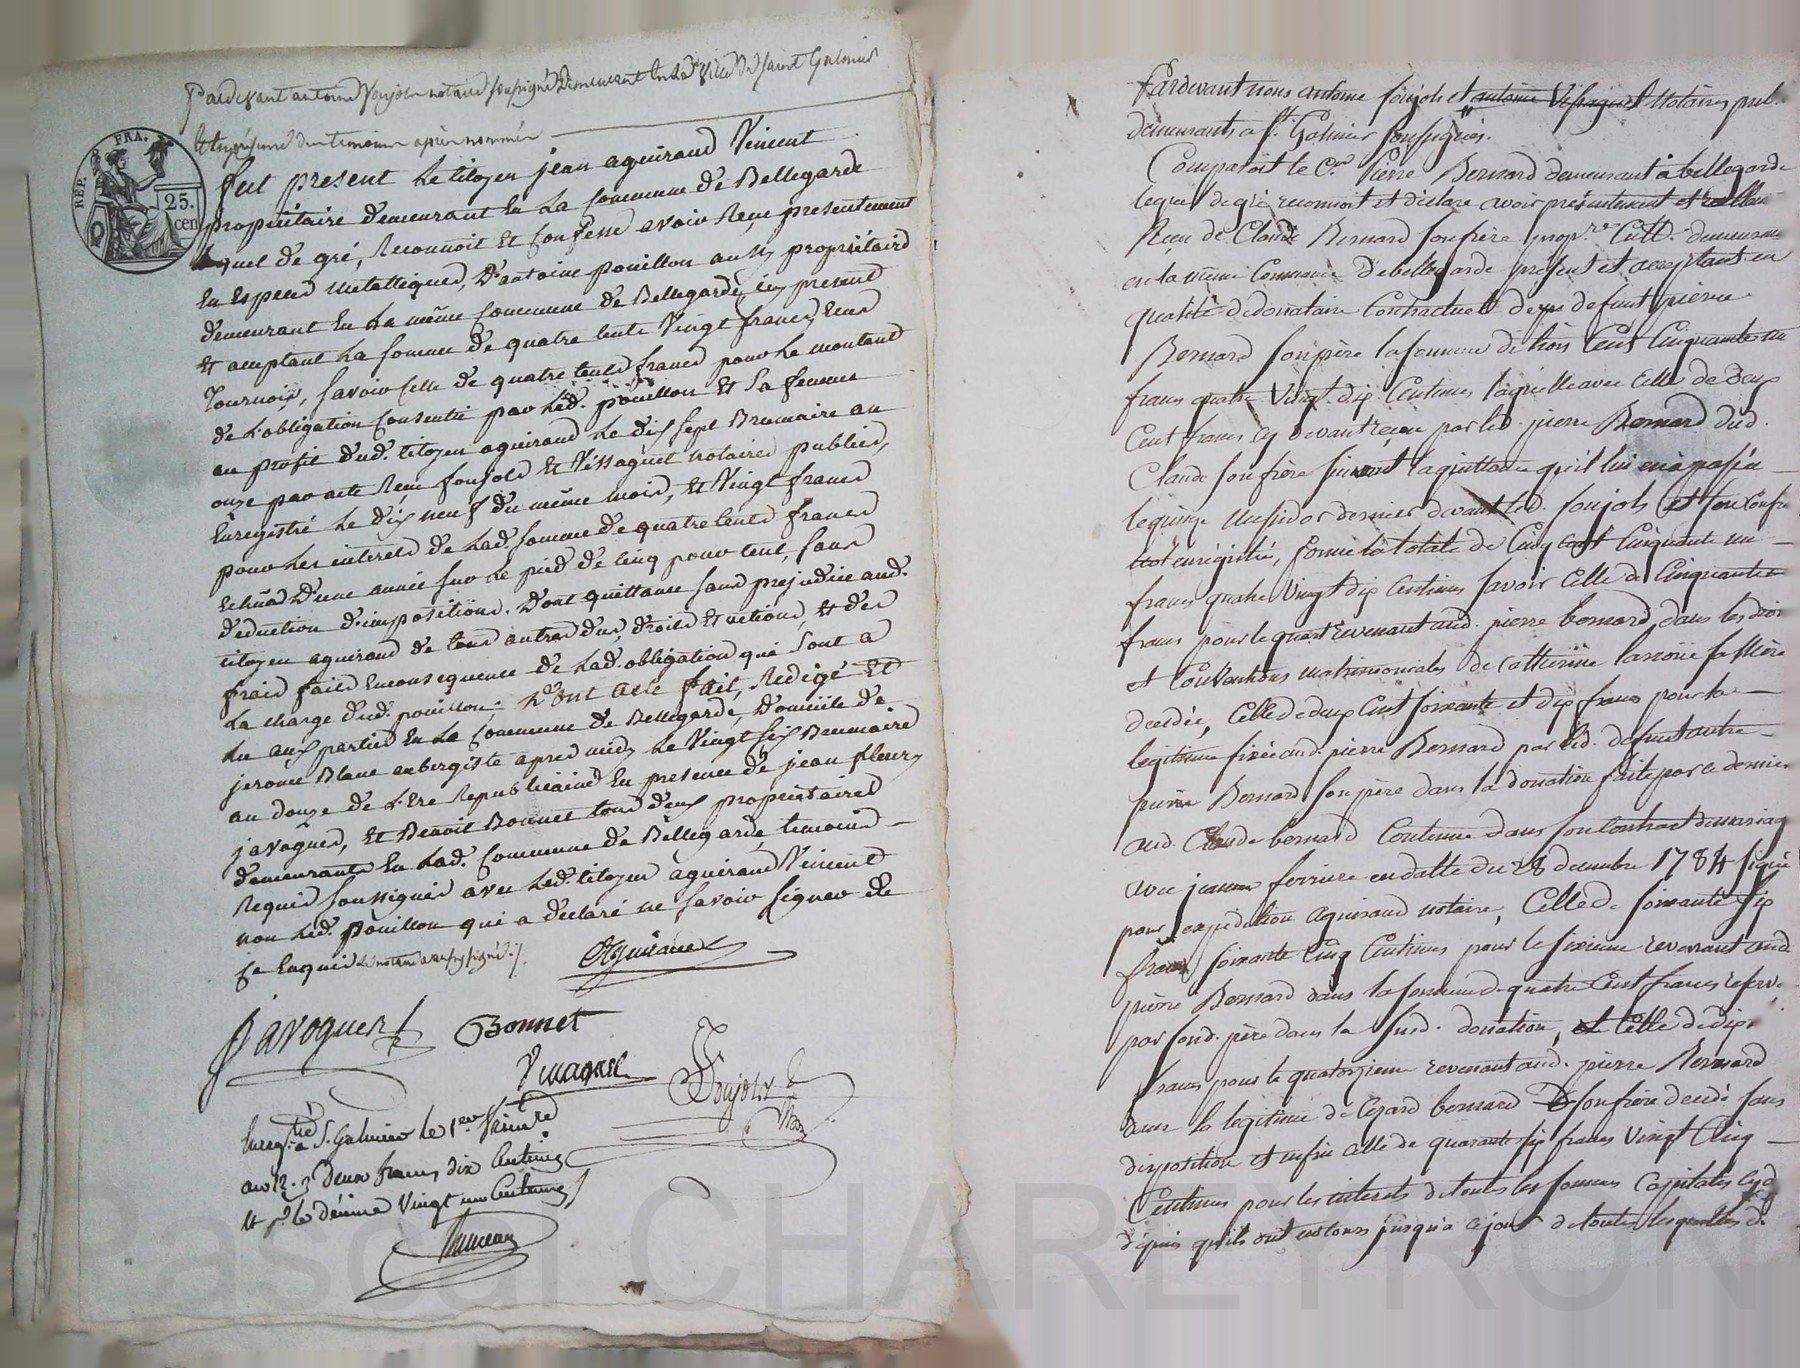 Pardevant antoine Foujols notaire soussigné Demeurant en La Ville de saint Galmier
Et en présence des temoins après nommés
REP. FRA.
25.
cen
fut present Le Citoyen jean aguiraud Vincent
propriétaire demeurant En La Commune de Bellegarde
Lequel de gré, Reconnoit Et Confesse avoir Reçu presentement
En Especes metalliques, D'antoine pouillon aussy propriétaire
demeurant En La même Commune de Bellegarde, icy present
Et acceptant La somme de quatre Cents Vingt francs, Ecus
Tournois, savoir Celle de quatre Cents francs pour Le montant
de L'obligation Consentie par Led. pouillon Et sa femme
au profit dud. Citoyen aguiraud Le dix sept Brumaire an
onze par acte Reçu foujols Et Vissaguet notaires publics,
Enregistré Le dix neuf du même mois, Et Vingt francs
pour Les interets de Lad. somme de quatre Cents francs
Echus D'une année sur Le pied de Cinq pour Cent, sans
déduction d'impositions. Dont quittance sans prejudice aud.
Citoyen aguiraud de tous autres dus, droits Et actions, Et des
frais faits En consequence de Lad. obligation qui sont a
La charge dud. pouillon; Dont acte fait, Redigé Et
Lu aux parties En La Commune de Bellegarde, Domicile de
jerome Blanc aubergiste apres midy Le Vingt six Brumaire
an douze de L'Ere Republicaine En presence de jean fleury
javogues, Et Benoit Bonnet tous deux propriétaires
demeurants En Lad. Commune de Bellegarde, temoins
Requis soussignés avec Led. Citoyen aguiraud Vincent
non Led. pouillon qui a declaré ne savoir signer de
Ce Enquis Le notaire aussy signé./.
Aguiraud
Javogues
Bonnet
Vissaguet
Foujols
Enreg.tré à S. Galmier le 1er frimaire
an 12. deux francs dix Centimes
et pr le décime Vingt un Centimes
Pardevant nous antoine foujols et antoine Vissaguet Notaires publ.
demeurants a St. Galmier soussignés.
Comparoit le Cen. Pierre Bernard demeurant à bellegarde
lequel de gré reconnoit et déclare avoir présentement et réellem
Reçu de Claude Bernard son frère propre. Cult. demeurant
en la même Commune de bellegarde présent et acceptant en
qualité de donataire Contractuel de defunt pierre
Bernard son père la somme de trois Cent Cinquante un
francs quatre Vingt dix Centimes laquelle avec Celle de deux
Cent francs cy devant reçue par led. pierre Bernard dud.
Claude son frère suivant la quittance qu'il lui en a passée
le quinze Messidor dernier devant led. foujols et son Confre
enrégistrée, forme la totale de Cinq Cent Cinquante un
francs quatre Vingt dix Centimes savoir Celle de Cinquante
francs pour le quart revenant aud. pierre bernard dans les droits
et Conventions matrimoniales de Catherine sa Mère
decedée, Celle de deux Cent soixante et dix francs pour la
légitime fixée aud. pierre Bernard par led. defunt autre
pierre Bernard son père dans la donation faite par ce dernier
aud. Claude bernard Contenue dans son Contrat de mariage
avec jeanne ferriere en datte du 28 decembre 1784 signé
pour expédition aguiraud notaire, Celle de soixante six
francs soixante Cinq Centimes pour le sixieme revenant aud
pierre Bernard dans la somme de quatre Cent francs reservée
par sond. père dans la susd. donation, et Celle de dix
francs pour le quatorzieme revenant aud. pierre Bernard
dans la légitime de Cezard bernard son frère decedé sans
disposition et enfin celle de quarante six francs Vingt Cinq
Centimes pour les interets de toutes les sommes Capitales
depuis qu'ils ont Cours jusqu'a ce jour de toutes lesquelles d.
Pascal CHAREYRON